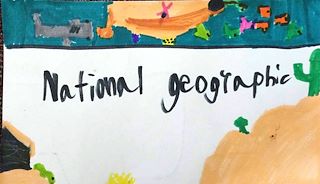 National geographic